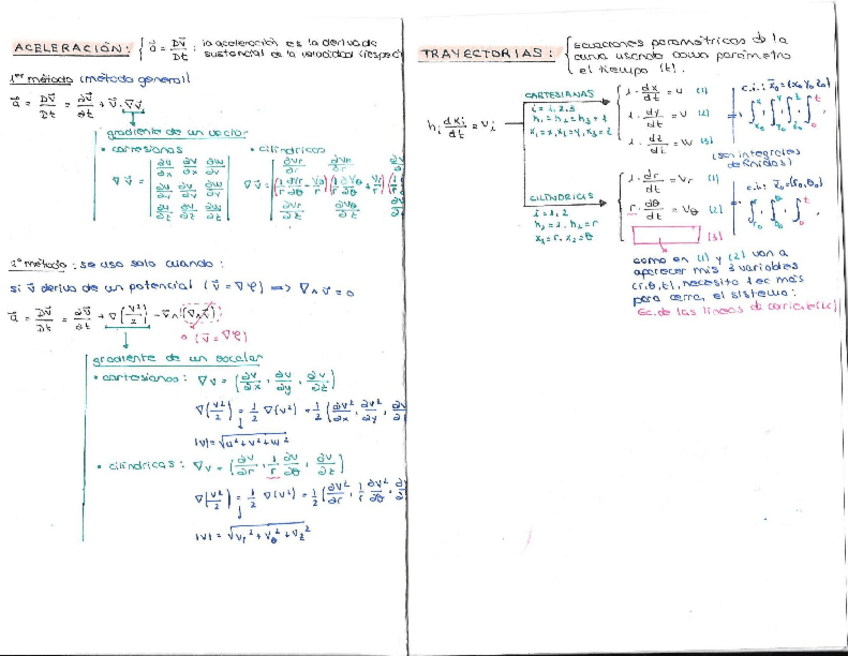 ACELERACIÓN: { a⃗ = Dv⃗/Dt : la aceleración es la derivada
sustancial de la velocidad (respec
1er método (método general)
a⃗ = Dv⃗/Dt = ∂v⃗/∂t + v⃗ · ∇v⃗
gradiente de un vector
• cartesianas
∇v⃗ = | ∂u/∂x ∂v/∂x ∂w/∂x |
• cilíndricas
2º método: se usa solo cuando:
si v⃗ deriva de un potencial (v⃗ = ∇φ) => ∇∧v⃗ = 0
a⃗ = Dv⃗/Dt = ∂v⃗/∂t + ∇(v²/2) - v⃗∧(∇∧v⃗)
0 (v⃗ = ∇φ)
gradiente de un escalar
• cartesianas: ∇v = (∂v/∂x, ∂v/∂y, ∂v/∂z)
∇(v²/2) = 1/2 ∇(v²) = 1/2 (∂v²/∂x, ∂v²/∂y,
|v| = √u²+v²+w²
• cilíndricas: ∇v = (∂v/∂r, 1/r ∂v/∂θ, ∂v/∂z)
∇(v²/2) = 1/2 ∇(v²) = 1/2 (∂v²/∂r, 1/r ∂v²/∂θ,
|v| = √vr²+vθ²+vz²
TRAYECTORIAS: { ecuaciones paramétricas de la
curva usando como parámetro
el tiempo (t).
hi dxi/dt = vi
CARTESIANAS
i = 1,2,3
h1 = h2 = h3 = 1
x1 = x, x2 = y, x3 = z
1 · dx/dt = u (1)
1 · dy/dt = v (2)
1 · dz/dt = w (3)
c.i.: x⃗0 = (x0 y0 z0)
(son integrales
definidas)
CILÍNDRICAS
i = 1,2
h1 = 1, h2 = r
x1 = r, x2 = θ
1 · dr/dt = vr (1)
r · dθ/dt = vθ (2)
(3)
c.i.: x⃗0 = (r0, θ0)
como en (1) y (2) van a
aparecer mis 3 variables
(r, θ, t), necesito 1 ec más
para cerrar el sistema:
Ec. de las líneas de corriente (LC)